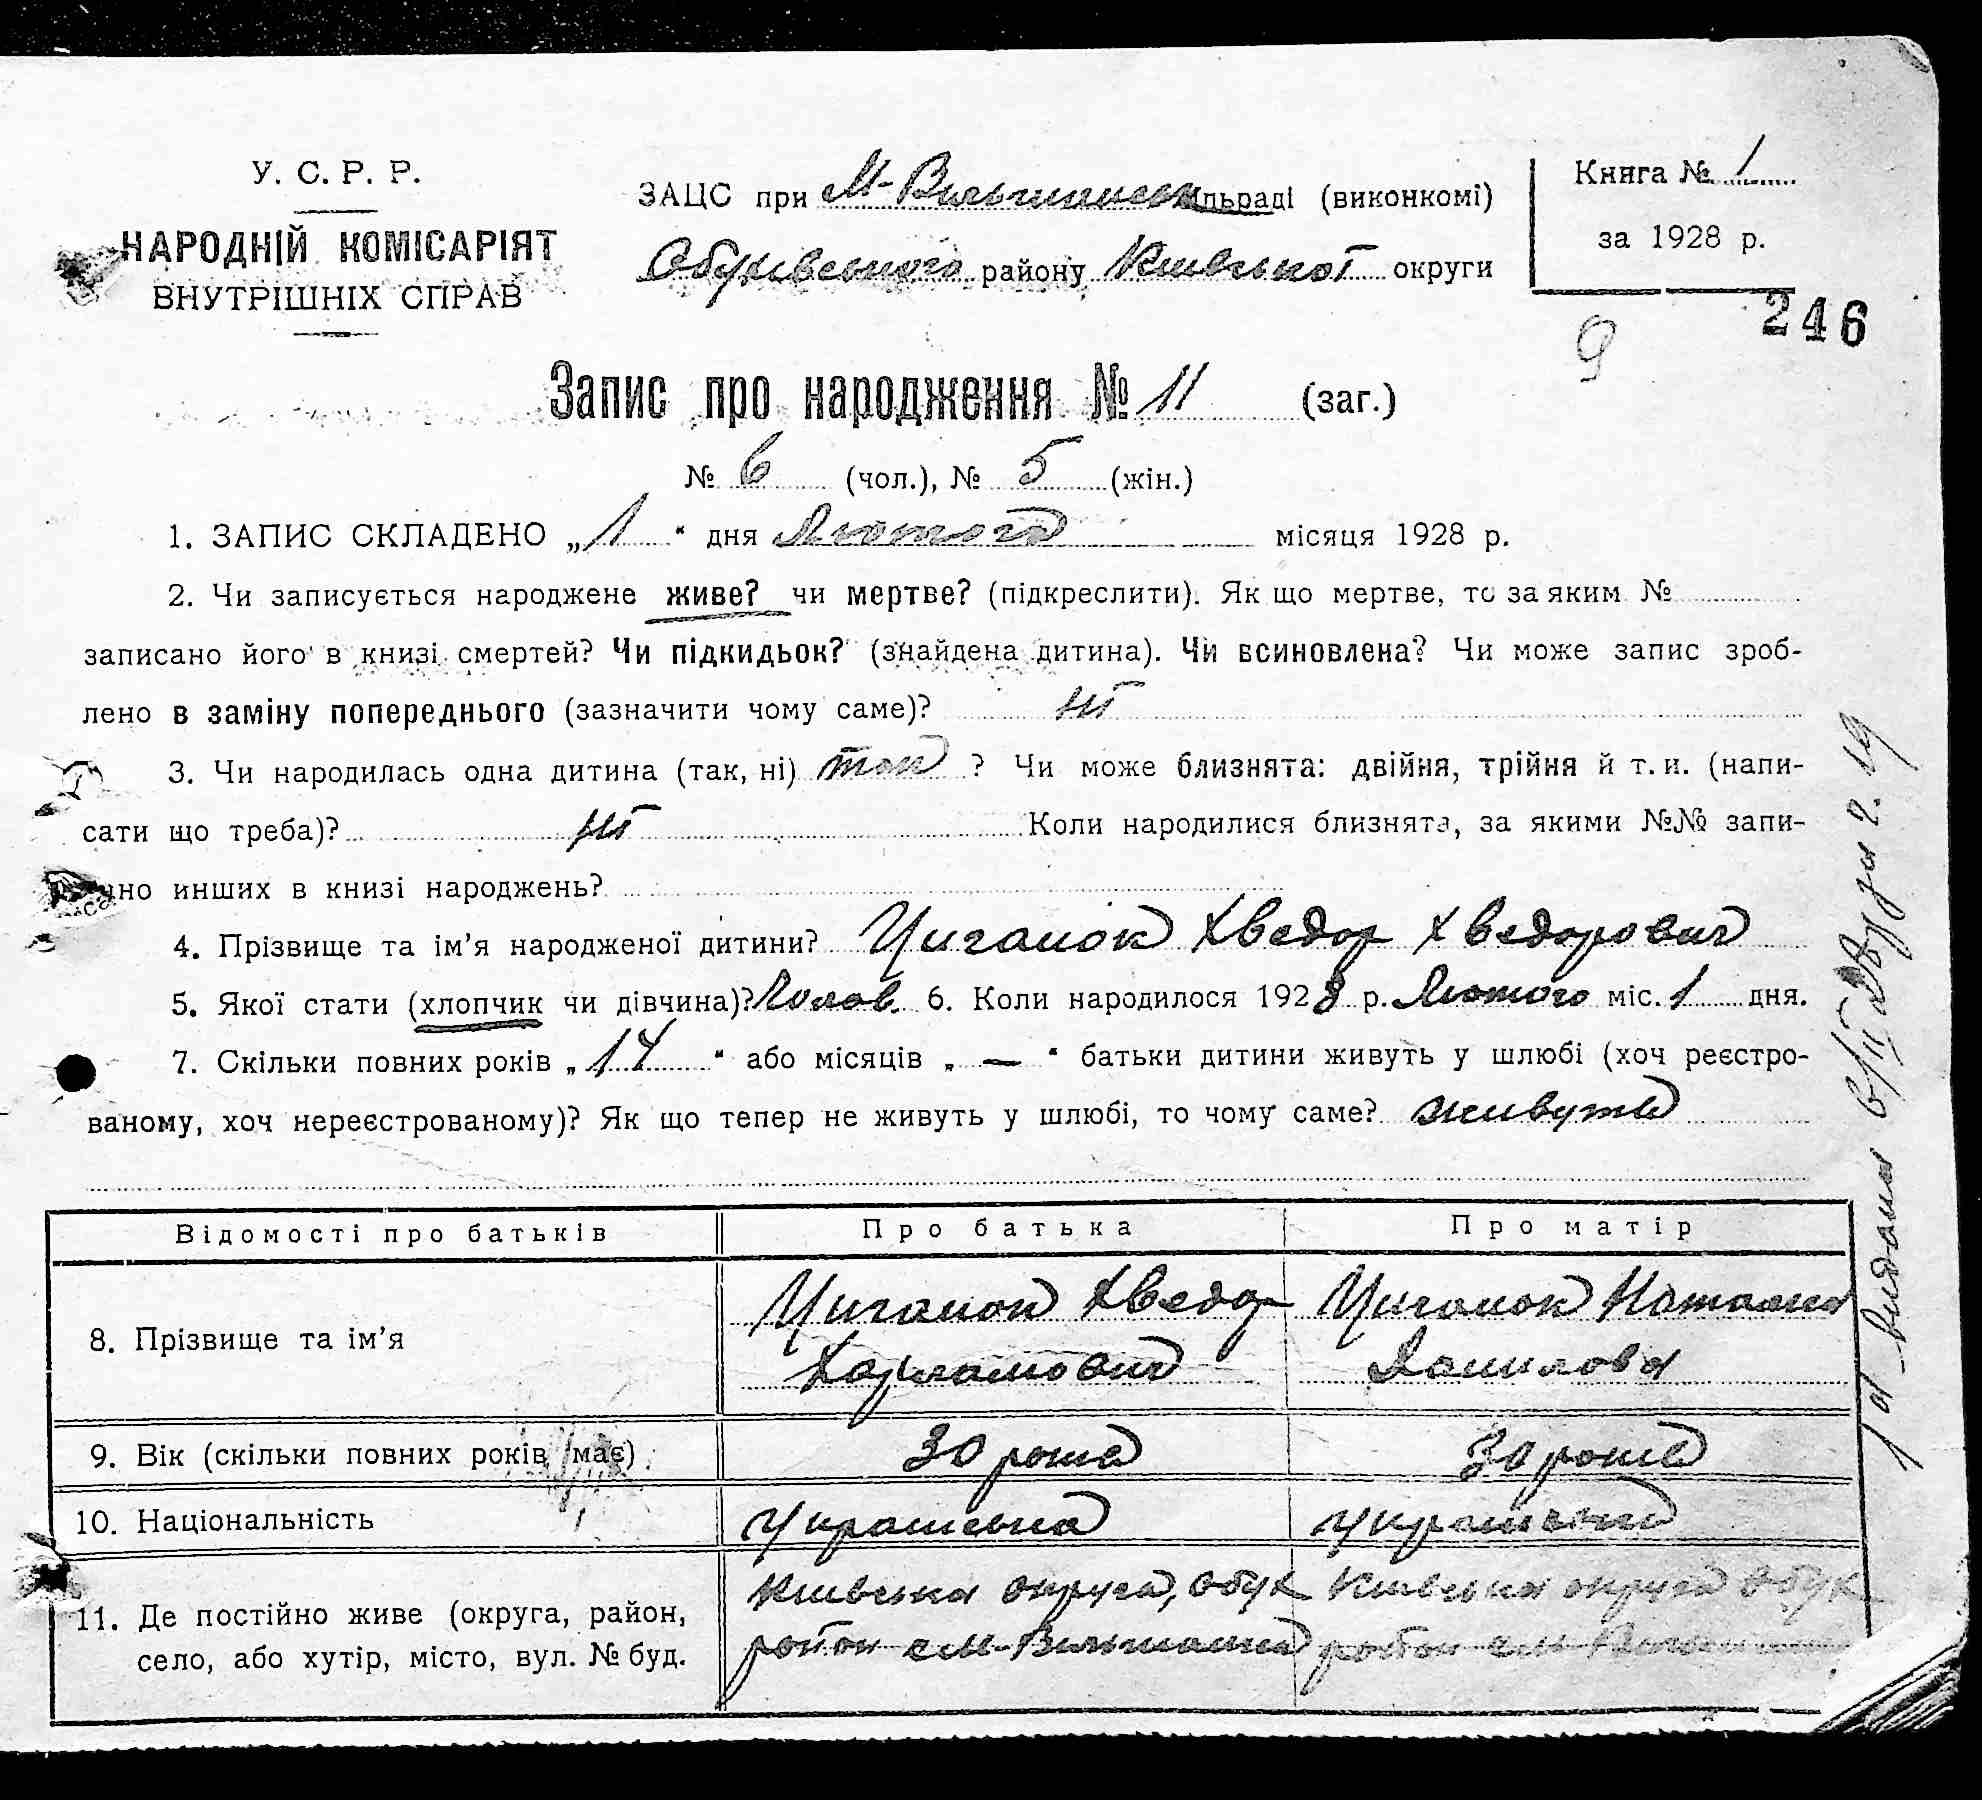 У. С. Р. Р.
НАРОДНІЙ КОМІСАРІЯТ
ВНУТРІШНІХ СПРАВ
ЗАЦС при М-Вільшанськ льраді (виконкомі)
Обухівського району Київської округи
Книга № 1
за 1928 р.
246
9
Запис про народження № 11 (заг.)
№ 6 (чол.), № 5 (жін.)
1. ЗАПИС СКЛАДЕНО „ 1 “ дня Лютого місяця 1928 р.
2. Чи записується народжене живе? чи мертве? (підкреслити). Як що мертве, то за яким №
записано його в книзі смертей? Чи підкидьок? (знайдена дитина). Чи всиновлена? Чи може запис зроб-
лено в заміну попереднього (зазначити чому саме)? ні
3. Чи народилась одна дитина (так, ні) так ? Чи може близнята: двійня, трійня й т. и. (напи-
сати що треба)? ні Коли народилися близнята, за якими №№ запи-
сано инших в книзі народжень?
4. Прізвище та ім’я народженої дитини? Циганок Хведор Хведорович
5. Якої стати (хлопчик чи дівчина)? Чолов. 6. Коли народилося 1928 р. Лютого міс. 1 дня.
7. Скільки повних років „ 14 “ або місяців „ — “ батьки дитини живуть у шлюбі (хоч реєстро-
ваному, хоч нереєстрованому)? Як що тепер не живуть у шлюбі, то чому саме? живуть
Відомості про батьків Про батька Про матір
8. Прізвище та ім’я
Циганок Хведор
Харламович
Циганок Наталка
Данилова
9. Вік (скільки повних років має) 30 років 30 років
10. Національність Українська Українська
11. Де постійно живе (округа, район,
село, або хутір, місто, вул. № буд.
Київська округа, Обух
район с М-Вільшанка
Київська округа Обух
район с М-Вільшанка
видана 6/II